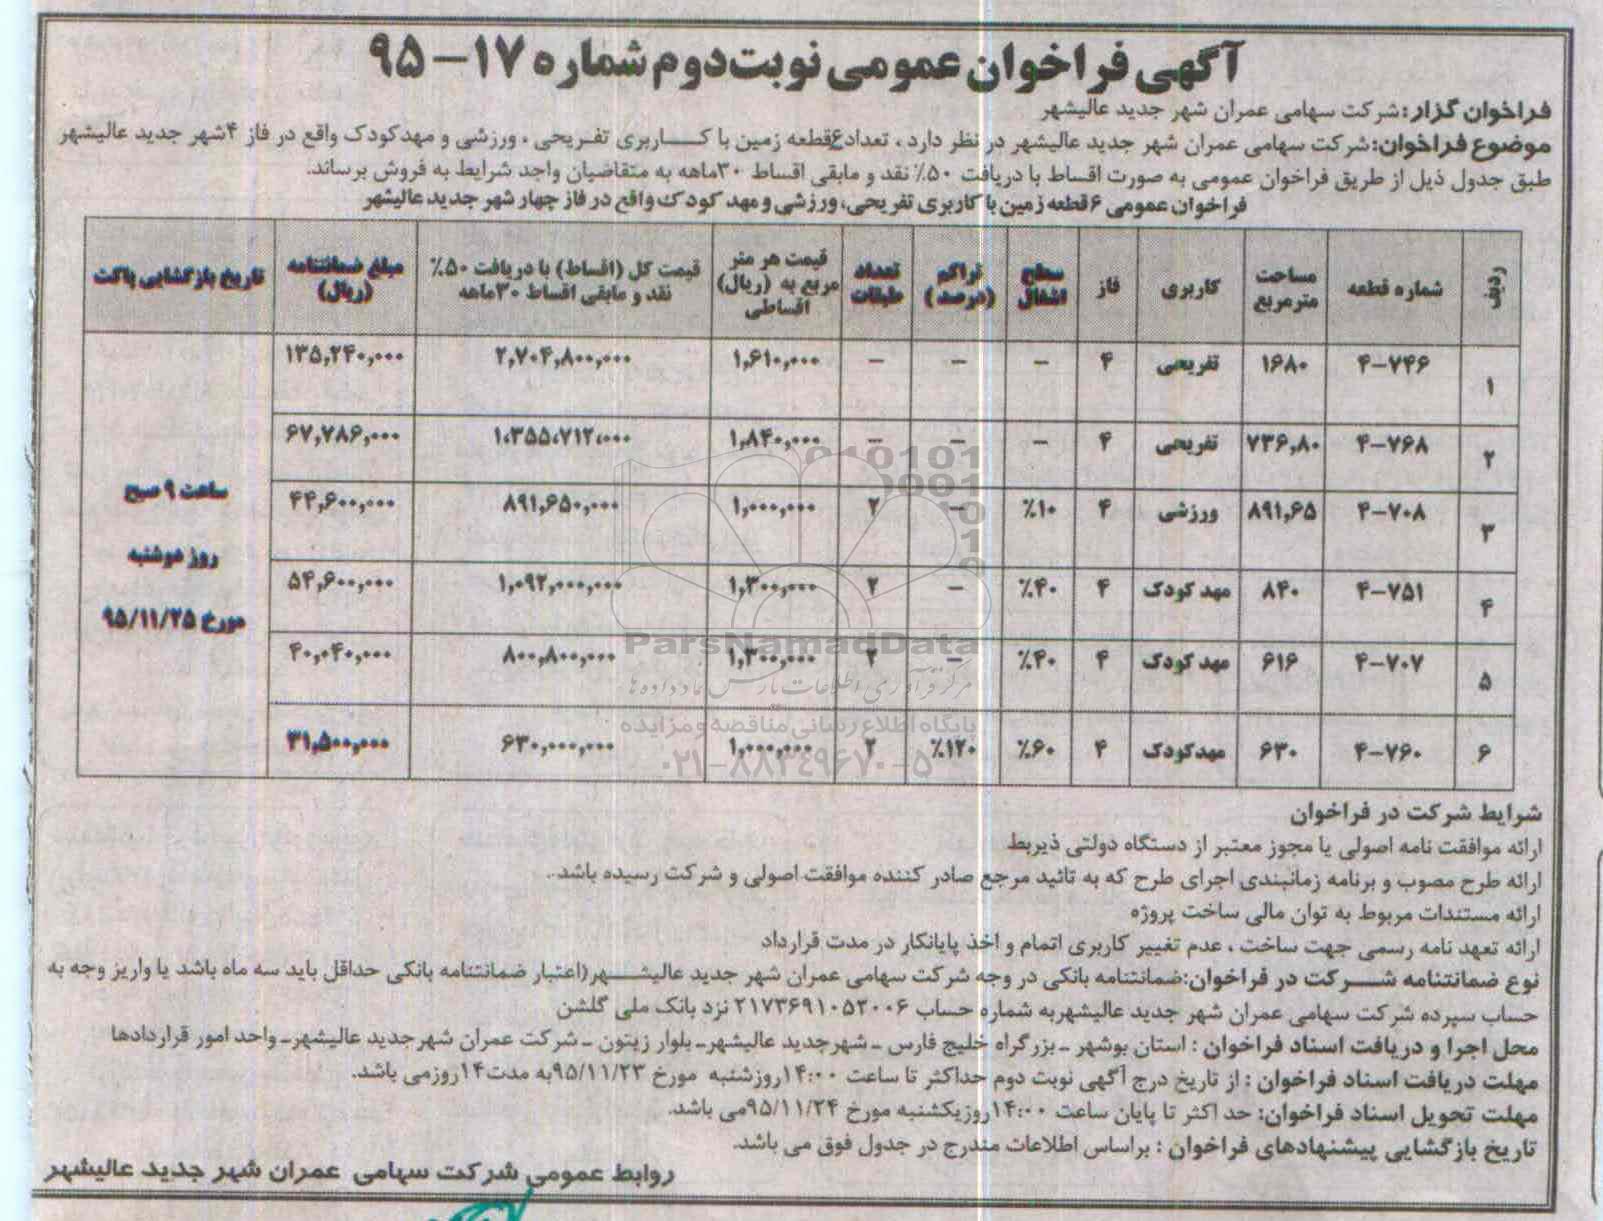 آگهی فراخوان عمومی نوبت‌دوم شماره ۱۷-۹۵
فراخوان گزار: شرکت سهامی عمران شهر جدید عالیشهر
موضوع فراخوان: شرکت سهامی عمران شهر جدید عالیشهر در نظر دارد ، تعداد۶قطعه زمین با کاربری تفریحی ، ورزشی و مهدکودک واقع در فاز ۴شهر جدید عالیشهر
طبق جدول ذیل از طریق فراخوان عمومی به صورت اقساط با دریافت ۵۰٪ نقد و مابقی اقساط ۳۰ماهه به متقاضیان واجد شرایط به فروش برساند.
فراخوان عمومی ۶قطعه زمین با کاربری تفریحی، ورزشی و مهد کودک واقع در فاز چهار شهر جدید عالیشهر
ردیف شماره قطعه مساحت مترمربع کاربری فاز سطح اشغال تراکم (درصد) تعداد طبقات قیمت هر متر مربع به (ریال) اقساطی قیمت کل (اقساط) با دریافت ۵۰٪ نقد و مابقی اقساط ۳۰ماهه مبلغ ضمانتنامه (ریال) تاریخ بازگشایی پاکت
۱ ۴-۷۴۶ ۱۶۸۰ تفریحی ۴ - - - ۱,۶۱۰,۰۰۰ ۲,۷۰۴,۸۰۰,۰۰۰ ۱۳۵,۲۴۰,۰۰۰
۲ ۴-۷۶۸ ۷۳۶,۸۰ تفریحی ۴ - - - ۱,۸۴۰,۰۰۰ ۱,۳۵۵,۷۱۲,۰۰۰ ۶۷,۷۸۶,۰۰۰
۳ ۴-۷۰۸ ۸۹۱,۶۵ ورزشی ۴ ۱۰٪ - ۲ ۱,۰۰۰,۰۰۰ ۸۹۱,۶۵۰,۰۰۰ ۴۴,۶۰۰,۰۰۰
۴ ۴-۷۵۱ ۸۴۰ مهد کودک ۴ ۴۰٪ - ۲ ۱,۳۰۰,۰۰۰ ۱,۰۹۲,۰۰۰,۰۰۰ ۵۴,۶۰۰,۰۰۰
۵ ۴-۷۰۷ ۶۱۶ مهد کودک ۴ ۴۰٪ - ۲ ۱,۳۰۰,۰۰۰ ۸۰۰,۸۰۰,۰۰۰ ۴۰,۰۴۰,۰۰۰
۶ ۴-۷۶۰ ۶۳۰ مهدکودک ۴ ۶۰٪ ۱۲۰٪ ۲ ۱,۰۰۰,۰۰۰ ۶۳۰,۰۰۰,۰۰۰ ۳۱,۵۰۰,۰۰۰
ساعت ۹ صبح
روز دوشنبه
مورخ ۹۵/۱۱/۲۵
ParsNamadData
مرکز فرآوری اطلاعات پارس نماد داده ها
پایگاه اطلاع رسانی مناقصه و مزایده
۰۲۱-۸۸۳۴۹۶۷۰-۵
شرایط شرکت در فراخوان
ارائه موافقت نامه اصولی یا مجوز معتبر از دستگاه دولتی ذیربط
ارائه طرح مصوب و برنامه زمانبندی اجرای طرح که به تائید مرجع صادر کننده موافقت اصولی و شرکت رسیده باشد.
ارائه مستندات مربوط به توان مالی ساخت پروژه
ارائه تعهد نامه رسمی جهت ساخت ، عدم تغییر کاربری اتمام و اخذ پایانکار در مدت قرارداد
نوع ضمانتنامه شرکت در فراخوان: ضمانتنامه بانکی در وجه شرکت سهامی عمران شهر جدید عالیشهر(اعتبار ضمانتنامه بانکی حداقل باید سه ماه باشد یا واریز وجه به
حساب سپرده شرکت سهامی عمران شهر جدید عالیشهربه شماره حساب ۲۱۷۳۶۹۱۰۵۲۰۰۶ نزد بانک ملی گلشن
محل اجرا و دریافت اسناد فراخوان : استان بوشهر -بزرگراه خلیج فارس -شهرجدید عالیشهر-بلوار زیتون -شرکت عمران شهرجدید عالیشهر-واحد امور قراردادها
مهلت دریافت اسناد فراخوان : از تاریخ درج آگهی نوبت دوم حداکثر تا ساعت ۱۴:۰۰روزشنبه مورخ ۹۵/۱۱/۲۳به مدت۱۴روزمی باشد.
مهلت تحویل اسناد فراخوان: حد اکثر تا پایان ساعت ۱۴:۰۰روزیکشنبه مورخ ۹۵/۱۱/۲۴می باشد.
تاریخ بازگشایی پیشنهادهای فراخوان : براساس اطلاعات مندرج در جدول فوق می باشد.
روابط عمومی شرکت سهامی عمران شهر جدید عالیشهر